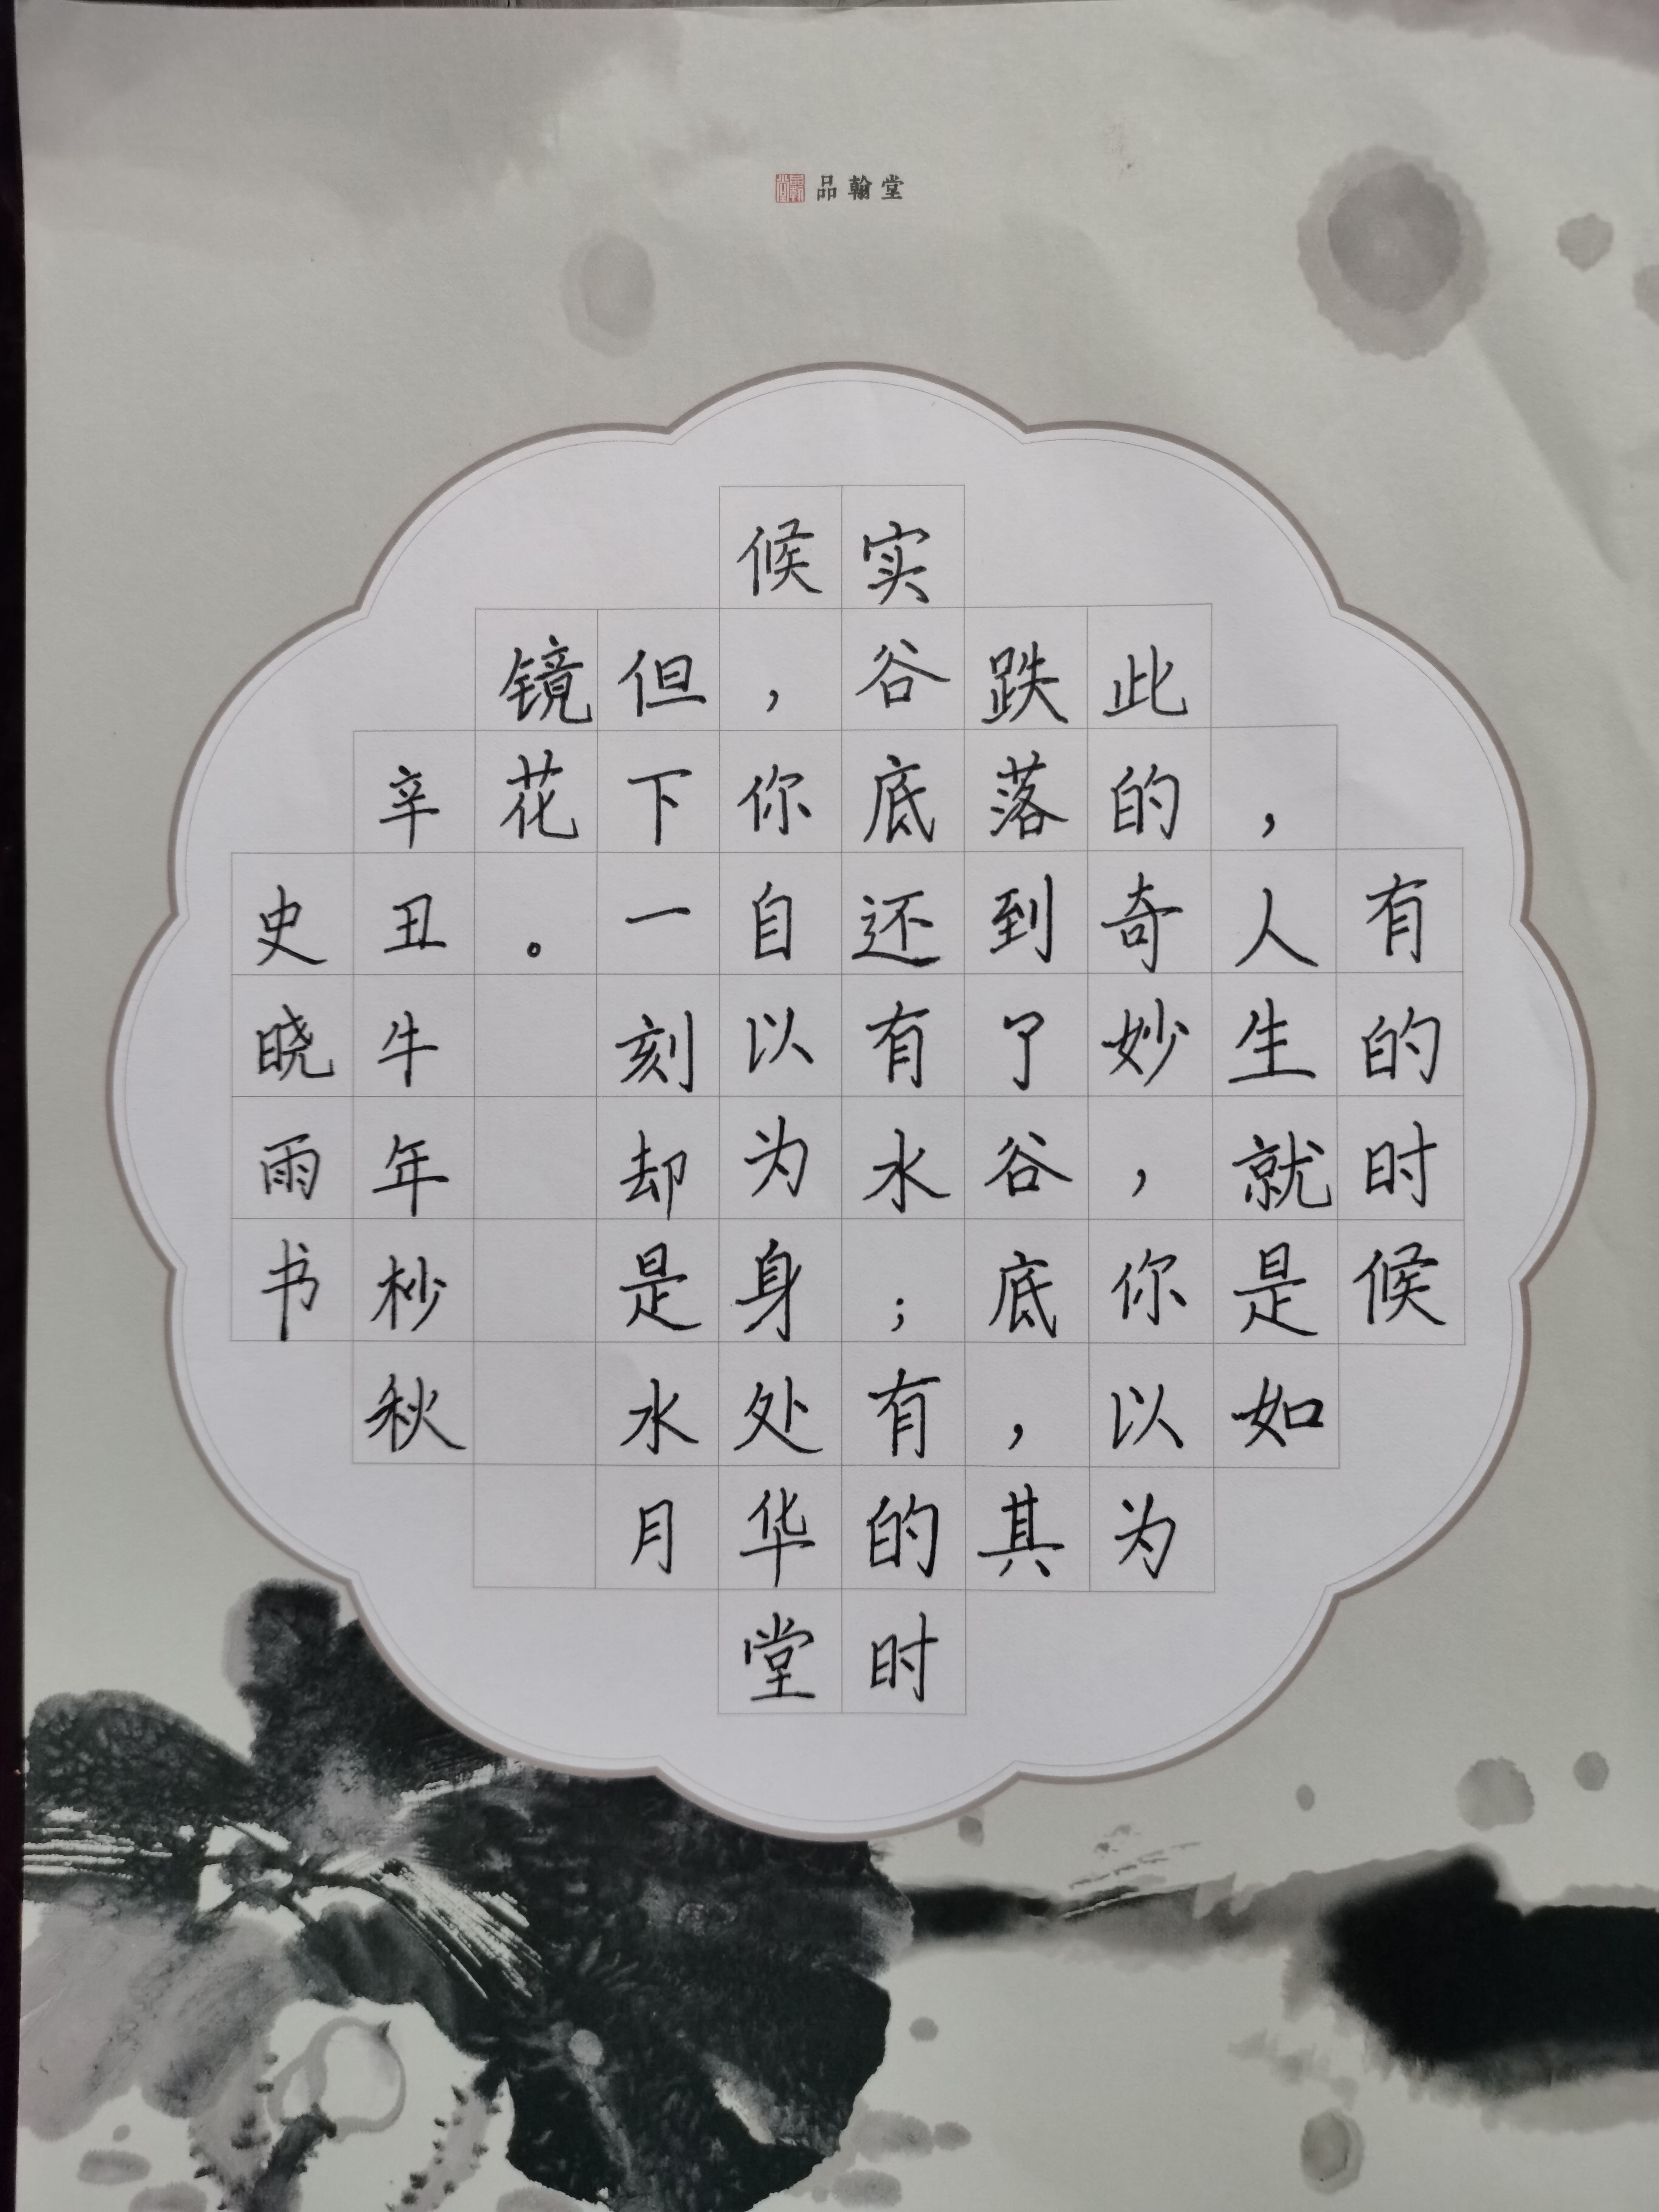 品翰堂
有的时候
，人生就是如
此的奇妙，你以为
跌落到了谷底，其
实谷底还有水；有的时
候，你自以为身处华堂
但下一刻却是水月
镜花。
辛丑牛年杪秋
史晓雨书